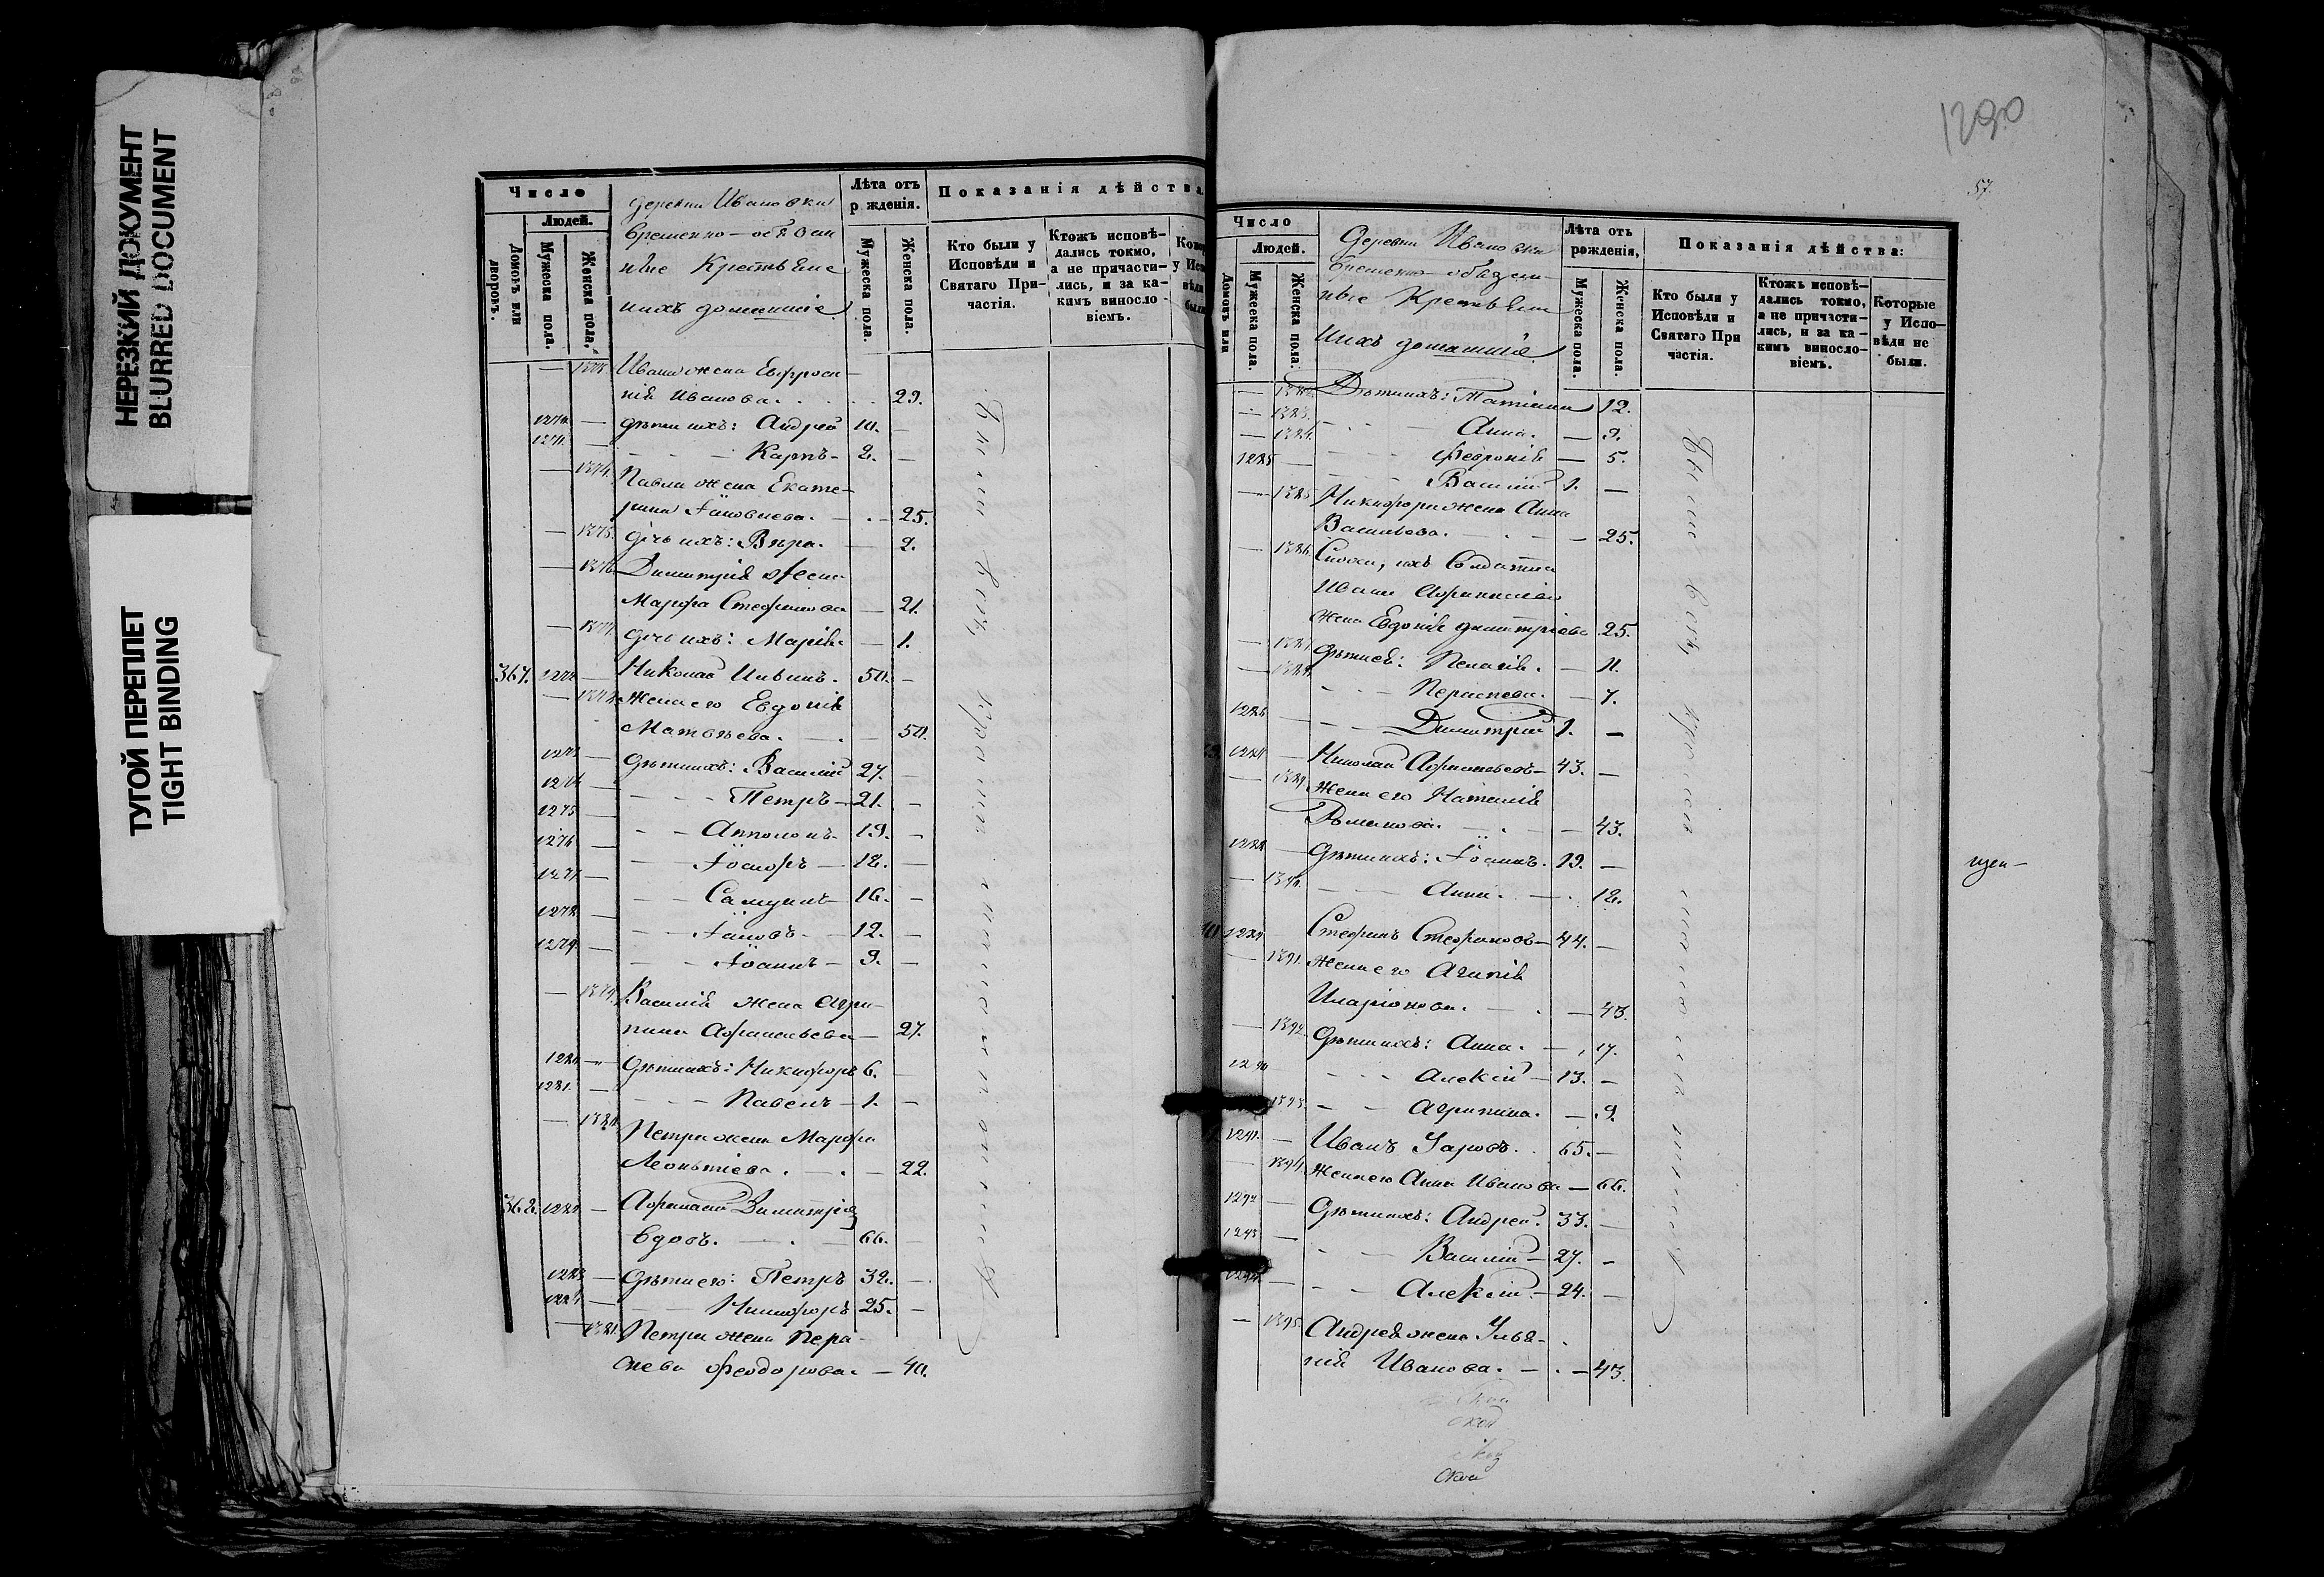 НЕРЕЗКИЙ ДОКУМЕНТ
BLURRED DOCUMENT
ТУГОЙ ПЕРЕПЛЕТ
TIGHT BINDING
Число
Людей.
Домовъ или дворовъ.
Мужеска пола.
Женска пола.
деревни Ивановки
временно-обязан
ные Крестьяне
ихъ домашніе
Лѣта отъ рожденія.
Мужеска пола.
Женска пола.
Показанія дѣйства
Кто были у Исповѣди и Святаго Причастія.
Ктожъ исповѣдались токмо, а не причастились, и за какимъ винословіемъ.
Ивана жена Ефроси
нія Иванова. 29.
дѣти ихъ: Андрей 10.
Карпъ 2.
1374. Павла жена Екате-
рина Іаковлева. 25.
1375. дочь ихъ: Вѣра. 2.
1376. Димитрія жена
Марфа Стефанова 21.
1377. дочь ихъ: Марія 1.
367. 1272 Николай 50.
1378. Жена его Евдокія
Матвѣева. 50.
1273. дѣти ихъ: Василій 27.
1274. Петръ 21.
1275 Апполонъ 19.
1276 Іосифъ 18.
1277. Самуилъ 16.
1278. Іаковъ 12.
1279. Іоаннъ 9.
1379. Василія жена Агри-
пина Афанасьева 27.
1280. дѣти ихъ: Никифоръ 6.
1281. Павелъ 1.
1380. Петра жена Марфа
Леонтіева. 22.
368. 1282 Афанасій Димитріев
вдовъ. 66.
1283 дѣти его: Петръ 32.
1284. Никифоръ 25.
1381. Петра жена Пера
скева Феодорова. 40.
Были всѣ
1290
57.
Число
Людей.
Домовъ или
Мужеска пола.
Женска пола.
Деревни Ивановки
временно-обязан-
ные Крестьяне
ихъ домашніе
Лѣта отъ рожденія,
Мужеска пола.
Женска пола.
Показанія дѣйства:
Кто были у Исповѣди и Святаго При частія.
Ктожъ исповѣдались токмо, а не причастились, и за какимъ винословіемъ.
Которые у Исповѣди не были.
1382. Дѣти ихъ: Татіана 12.
1383. Анна. 9.
1384. Февронія 5.
1285 Василій 1.
1385. Никифора жена Анна
Васильева. 25.
1386. Сноха, ихъ Солдатка
Ивана Афанасіева
жена Евдокія Димитріева 25.
1387. дѣти ея: Пелагія. 11.
1388. Пераскева. 7.
1286 Димитрій 1.
1287 Николай Афанасьевъ 43.
1389. Жена его Наталія
Романова. 43.
1288 дѣти ихъ: Іоаннъ. 19.
1390. Анна. 18.
1289 Стефанъ Стефановъ 44.
1391. Жена его Агапія
Иларіонова. 43.
1392. дѣти ихъ: Анна. 17.
1290 Алексій 13.
1393. Агрипина. 9.
1291. Иванъ 65.
1394. Жена его Анна Иванова 66.
1292 Дѣти ихъ: Андрей. 33.
1293 Василій 27.
1294. Алексій 24.
1395. Андрея жена Улья-
нія Иванова. 43.
Были всѣ